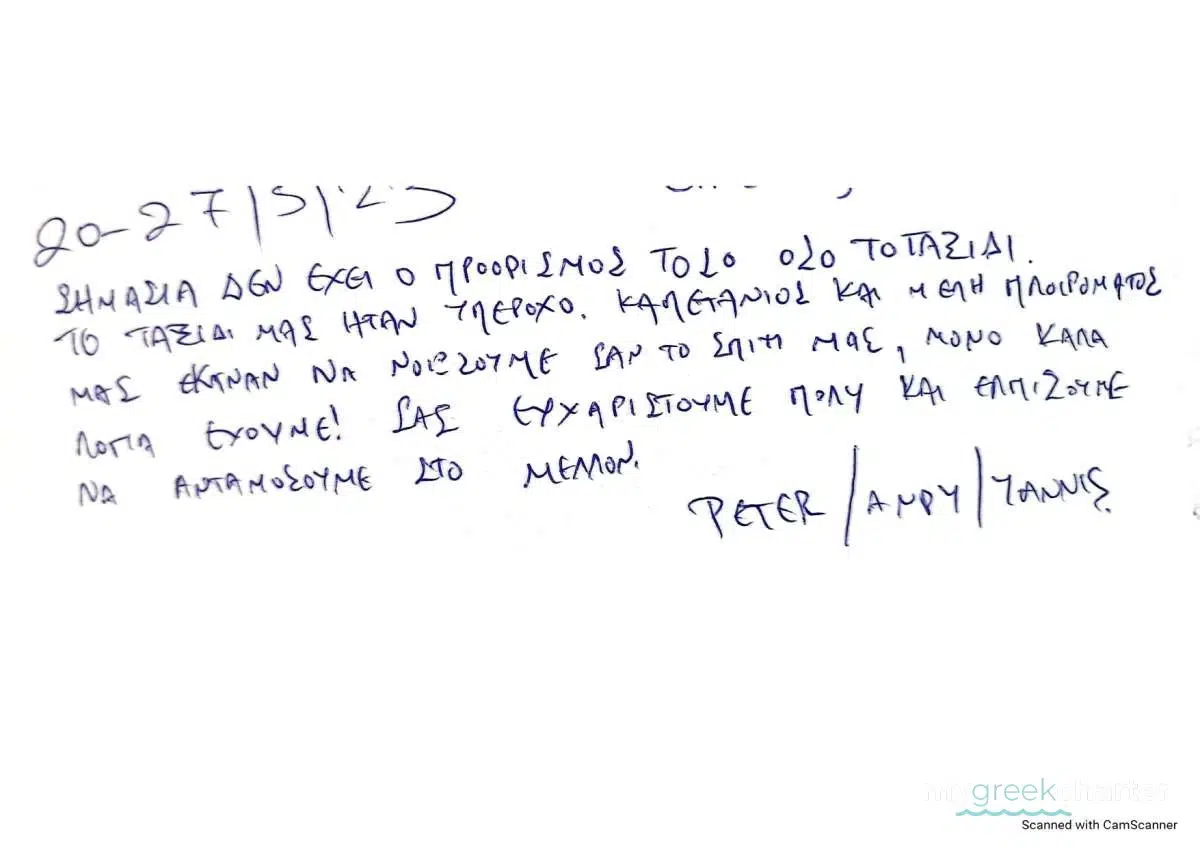 20-27/5/23
ΣΗΜΑΣΙΑ ΔΕΝ ΕΧΕΙ Ο ΠΡΟΟΡΙΣΜΟΣ ΤΟΣΟ ΟΣΟ ΤΟ ΤΑΞΙΔΙ.
ΤΟ ΤΑΞΙΔΙ ΜΑΣ ΗΤΑΝ ΥΠΕΡΟΧΟ. ΚΑΠΕΤΑΝΙΟΣ ΚΑΙ ΜΕΛΗ ΠΛΟΙΡΟΜΑΤΟΣ
ΜΑΣ ΕΚΑΝΑΝ ΝΑ ΝΟΙΣΟΥΜΕ ΣΑΝ ΤΟ ΣΠΙΤΙ ΜΑΣ, ΜΟΝΟ ΚΑΛΑ
ΛΟΓΙΑ ΕΧΟΥΜΕ! ΣΑΣ ΕΥΧΑΡΙΣΤΟΥΜΕ ΠΟΛΥ ΚΑΙ ΕΛΠΙΖΟΥΜΕ
ΝΑ ΑΝΤΑΜΟΣΟΥΜΕ ΣΤΟ ΜΕΛΛΟΝ.
PETER/ANDY/YANNIS
mygreekcharter
Scanned with CamScanner